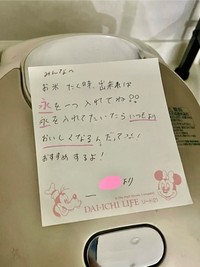 みんなへ
お米 たく時、出来れば
氷を一つ入れてね!!
氷を入れてたいたらいつもより
おいしくなるんだって!!
おすすめするよ!
より
DAI-ICHI LIFE